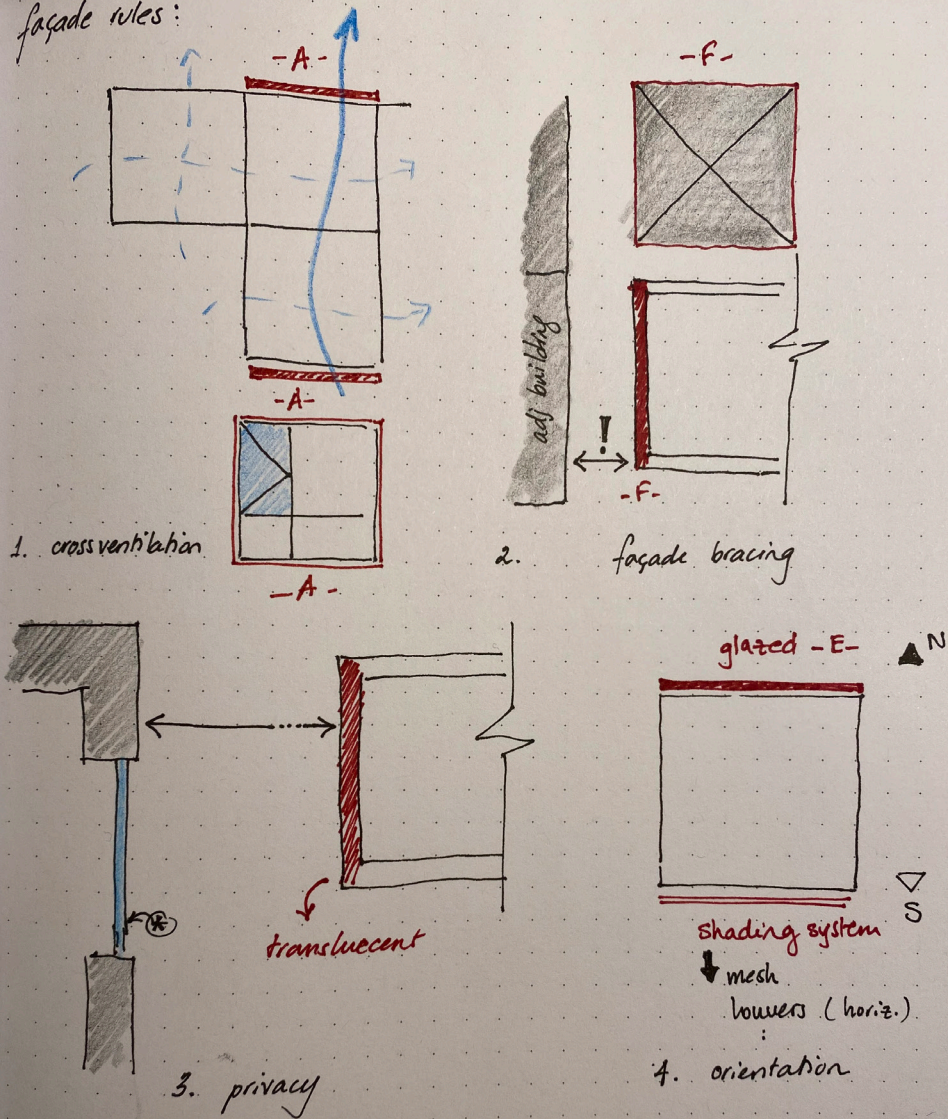 façade rules:
-A-
-A-
1. crossventilation
-A-
-F-
adj building
!
-F-
2. façade bracing
transluecent
3. privacy
N
glazed -E-
S
shading system
mesh
louvers (horiz.)
:
4. orientation